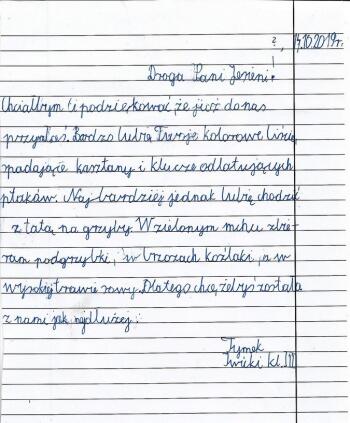 ?, 14.10.2019r.
Droga Pani Jesieni!
Chciałbym Ci podziękować, że już do nas
przyszłaś. Bardzo lubię Twoje kolorowe liście,
spadające kasztany i klucze odlatujących
ptaków. Najbardziej jednak lubię chodzić
z tatą na grzyby. W zielonym mchu zbie-
ram podgrzybki, w brzozach koźlaki, a w
wysokiej trawie sowy. Dlatego chcę, żebyś została
z nami jak najdłużej.
Tymek
kl. III